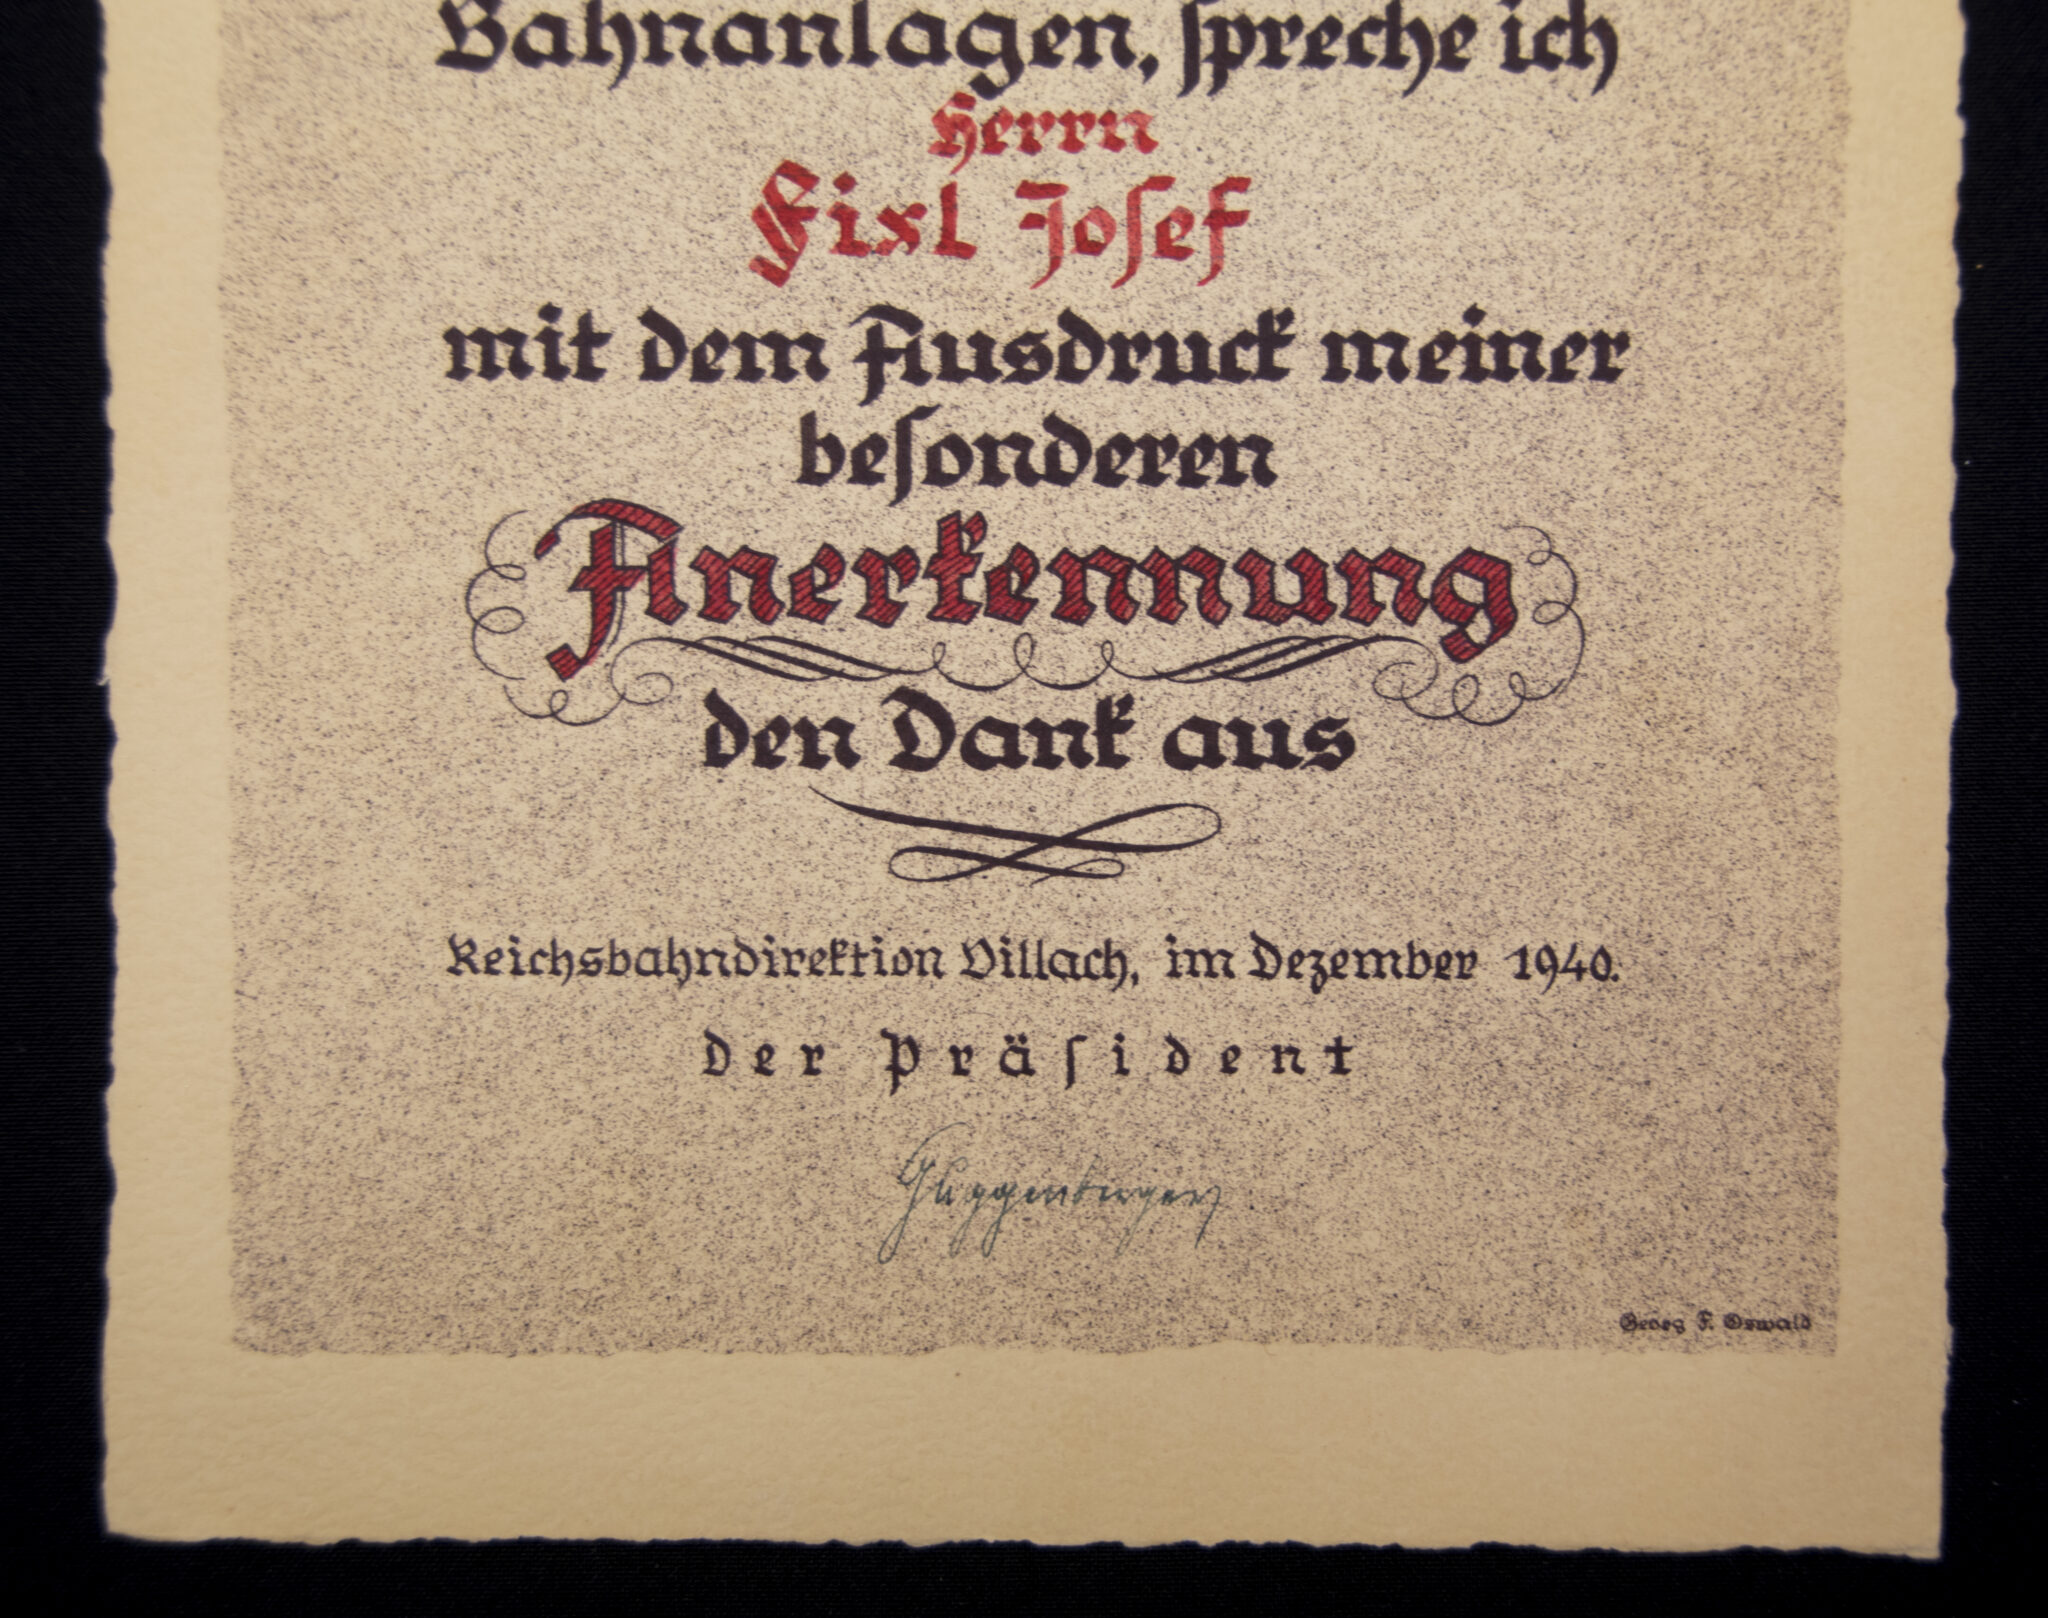 Bahnanlagen, spreche ich
Herrn
Fixl Josef
mit dem Ausdruck meiner
besonderen
Anerkennung
den Dank aus
Reichsbahndirektion Villach, im Dezember 1940.
der Präsident
Guggenberger
Georg F. Oswald